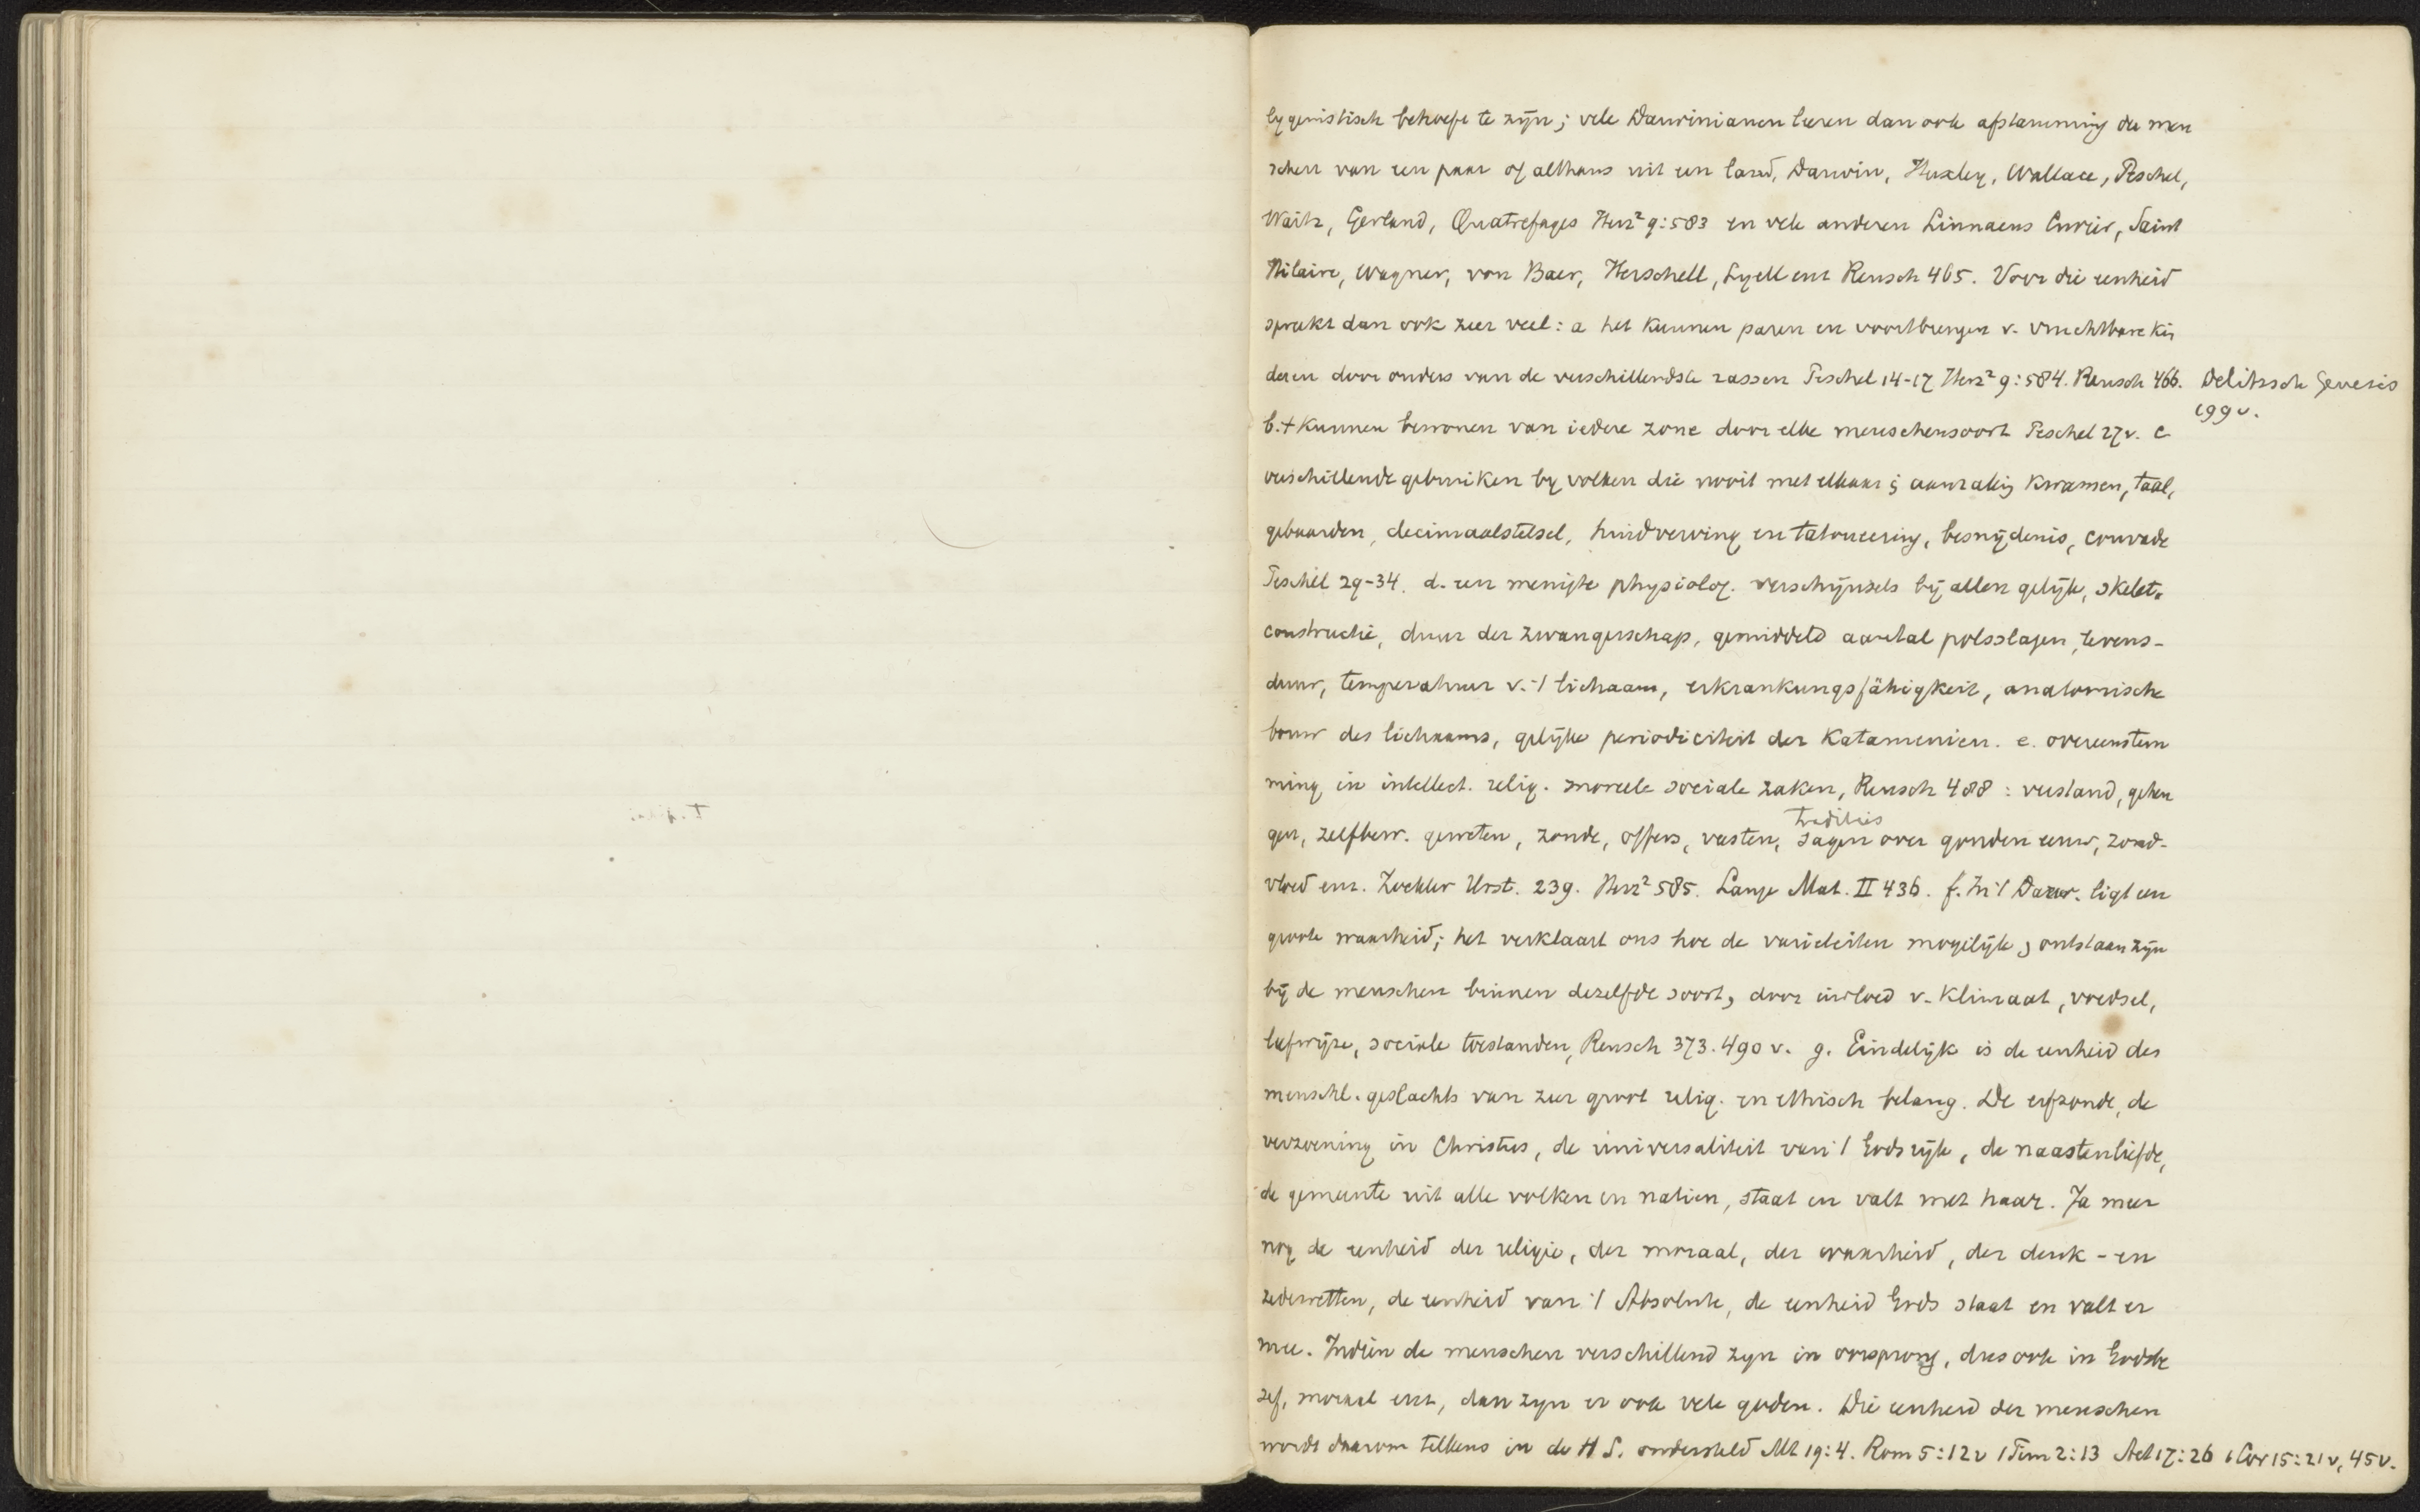 lygenistisch behoefe te zijn; vele Darwinianen leeren dan ook afstamming der men
schen van een paar of althans uit een land, Darwin, Huxley, Wallace, Peschel,
Waitz, Gerland, Quatrefages Herz² 9:583 en vele anderen Linnaeus Cuvier, Saint
Hilaire, Wagner, von Baer, Herschell, Lyell enz Reusch 465. Voor die eenheid
spreekt dan ook zeer veel: a het kunnen paren en voortbrengen v. vruchtbare kin
deren door ouders van de verschillendste rassen Peschel 14-17 Herz² 9:584. Reusch 466.
Delitzsch Genesis
199v.
b. 't kunnen bewonen van iedere zone door elke menschensoort Peschel 27v. c
verschillende gebruiken by volken die nooit met elkaar in aanraking kwamen, taal,
gebaarden, decimaalstelsel, huidverving en tatoueering, besnijdenis, couvade
Peschel 29-34. d. een menigte physiolog. verschijnsels bij allen gelijk, skelet-
constructie, duur der zwangerschap, gemiddeld aantal polsslagen, levens-
duur, temperatuur v. 't lichaam, erkrankungsfähigkeit, anatomische
bouw des lichaams, gelijke periodiciteit der Katamenien. e. overeenstem
ming in intellect. relig. moreele sociale zaken, Reusch 488: verstand, geheu
gen, zelfbew. geweten, zonde, offers, vasten, sagen over gouden eeuw, zond-
tradities
vloed enz. Zockler Urst. 239. Herz² 585. Lange Mat. II 436. f. In 't Darw. ligt een
groote waarheid; het verklaart ons hoe de varieteiten mogelijk ontstaan zijn
bij de menschen binnen dezelfde soort, door invloed v. klimaat, voedsel,
leefwijze, sociale toestanden, Reusch 373. 490 v. g. Eindelijk is de eenheid des
menschl. geslachts van zeer groot relig. en ethisch belang. De erfzonde, de
verzoening in Christus, de universaliteit van 't Godsrijk, de naastenliefde,
de gemeente uit alle volken en natien, staat en valt met haar. Ja meer
nog de eenheid der religie, der moraal, der waarheid, der denk- en
zedewetten, de eenheid van 't Absolute, de eenheid Gods staat en valt er
mee. Indien de menschen verschillend zyn in oorsprong, dus ook in Godsbe
sef, moraal enz, dan zyn er ook vele goden. Die eenheid der menschen
wordt daarom telkens in de H S. ondersteld Mt 19:4. Rom 5:12v 1 Tim 2:13 Act 17:26 1 Cor 15:21v, 45v.